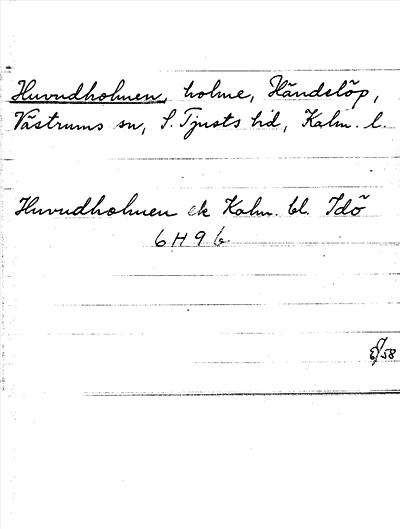 Huvudholmen, holme, Händelöp,
Västrums sn, S. Tjusts hd, Kalm. l.
Huvudholmen ek Kalm. bl. Idö
6 H 9 b